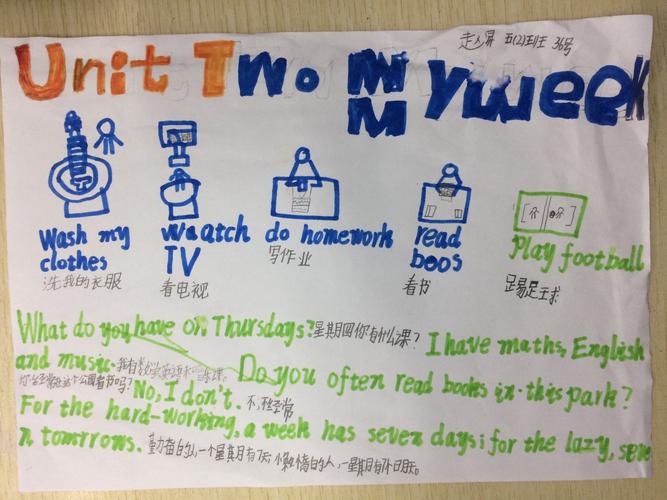 五(2)班 36号
Unit Two My week
Wash my clothes
洗我的衣服
waatch TV
看电视
do homework
写作业
read boos
看书
Play football
踢足球
What do you have on Thursdays? 星期四你有什么课? I have maths, English
and music. Do you often read books in this park?
No, I don't. 不,不经常
For the hard-working, a week has seven days; for the lazy, seve
n tomtrrows. 勤奋的人,一个星期有7天;懒惰的人,一星期有7个明天。